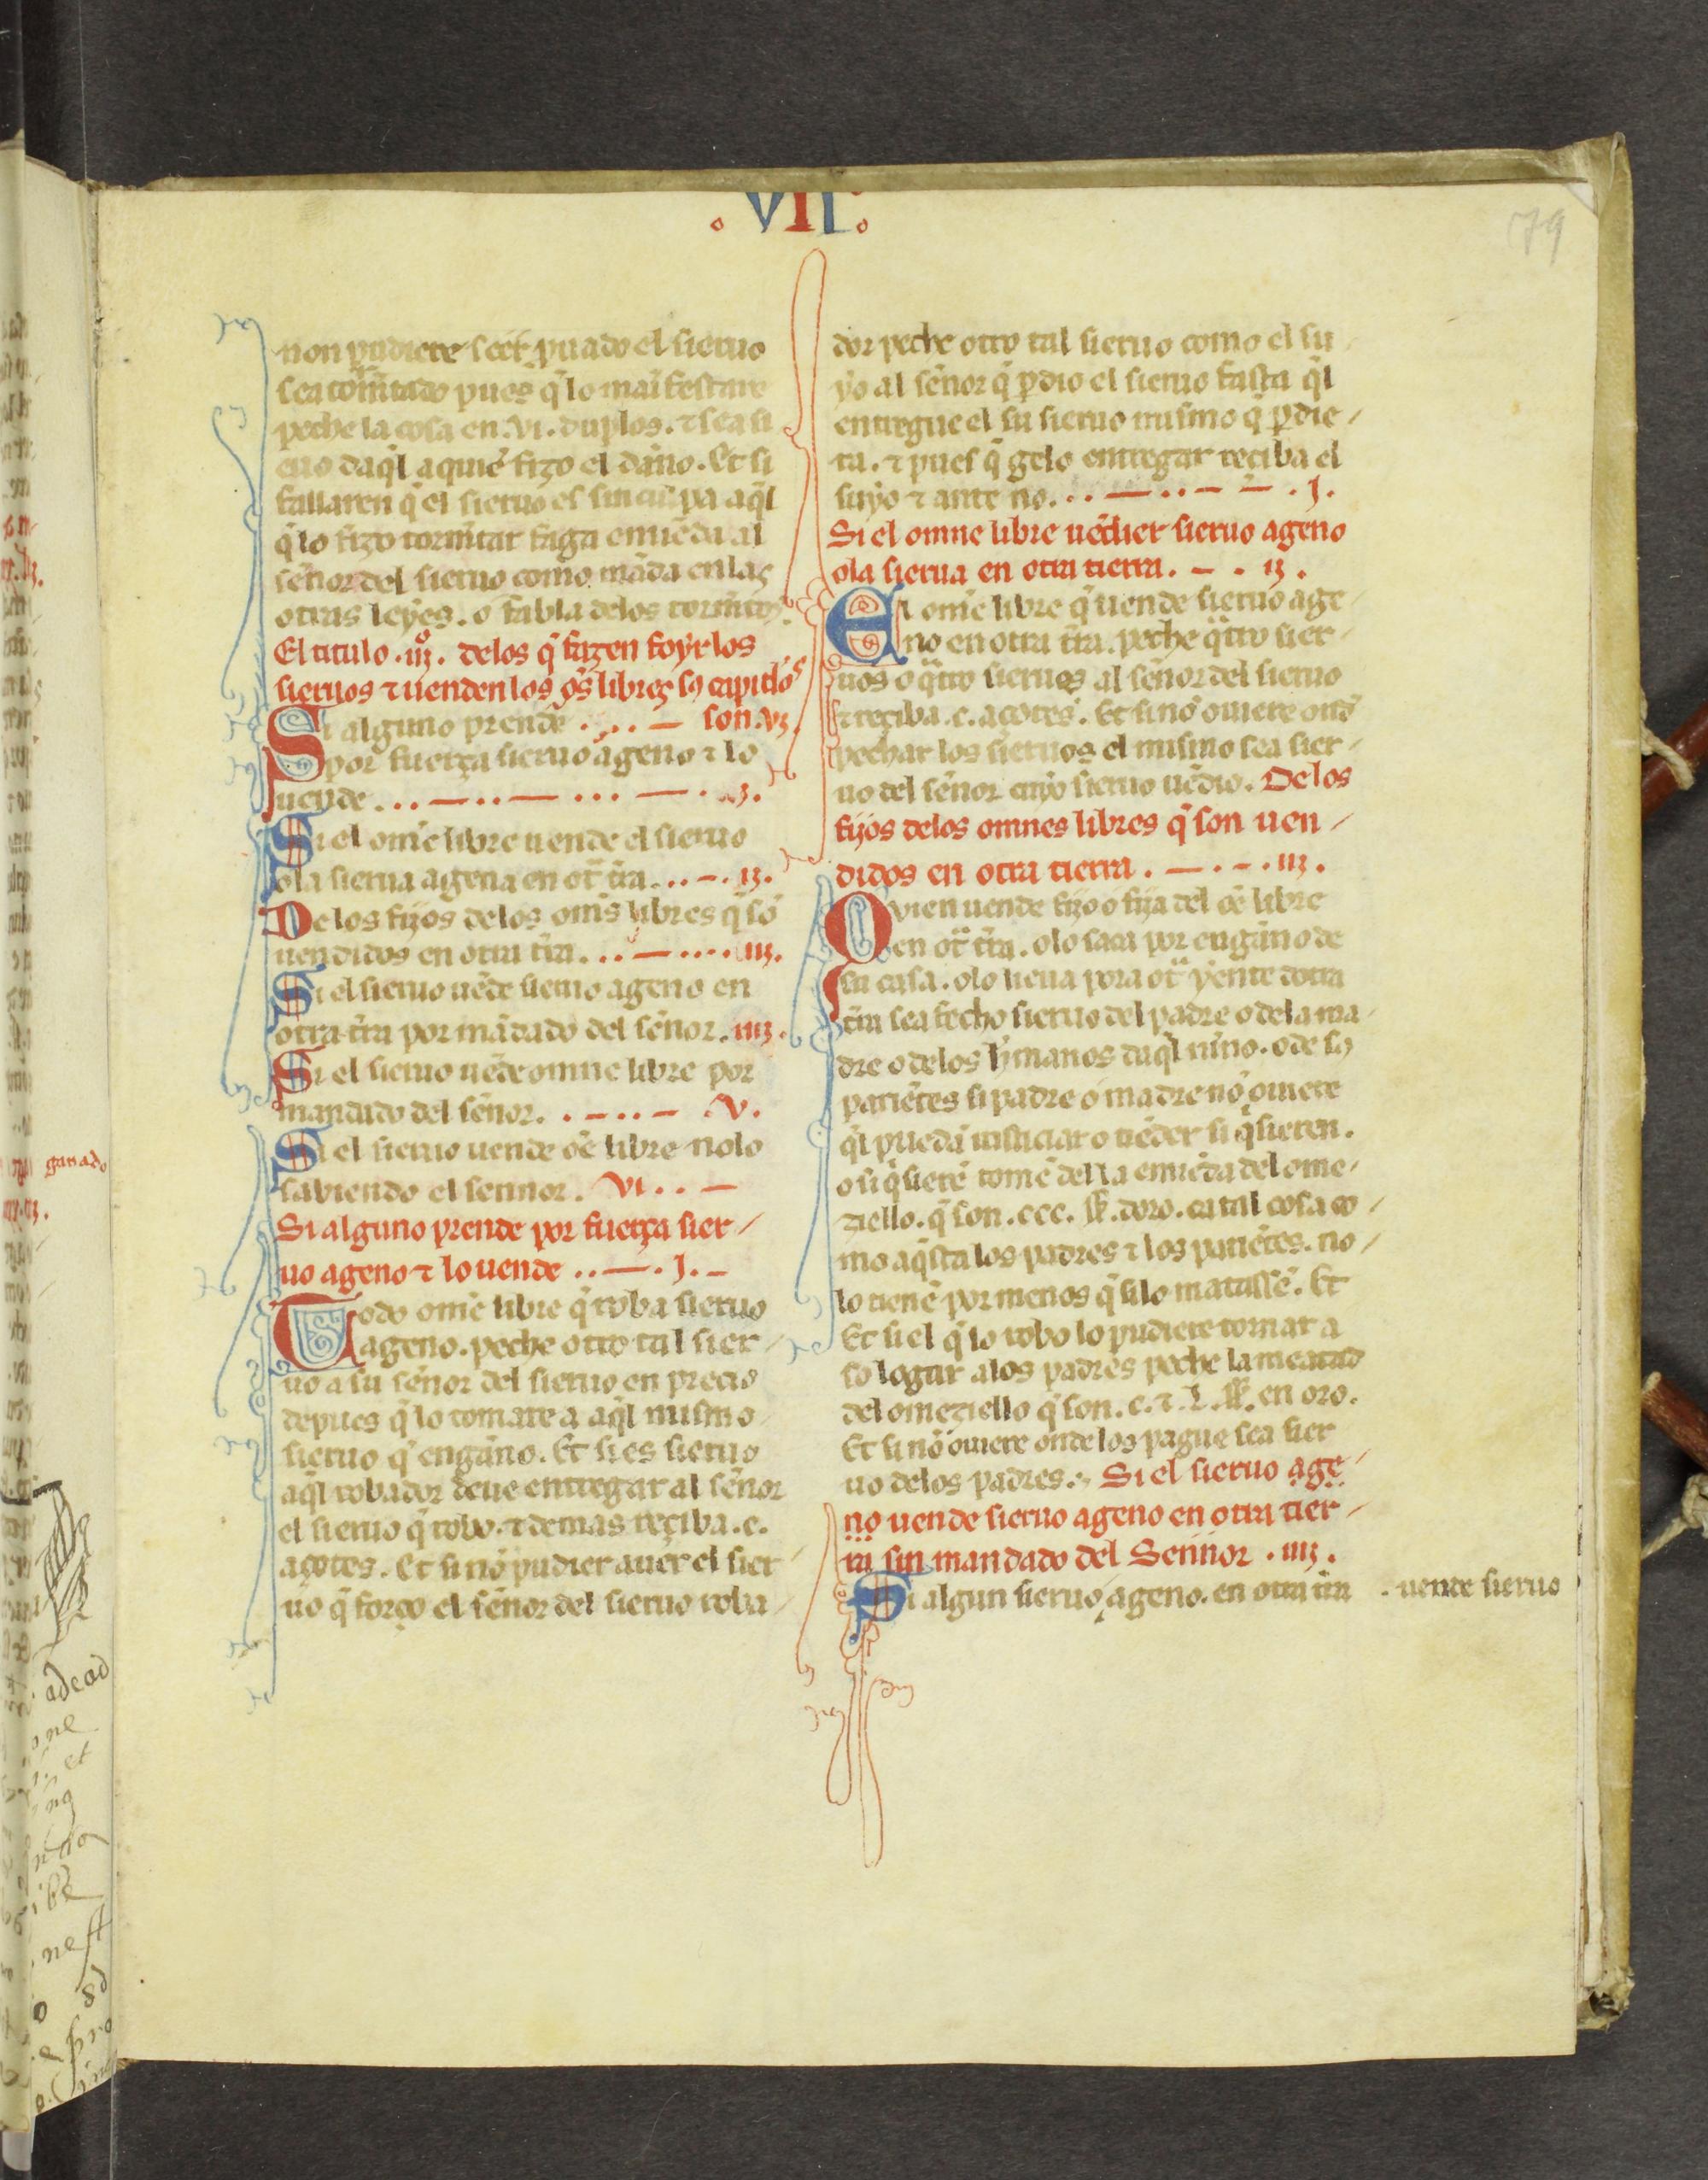 .VII.
79
non pudiere seer puado el sieruo
sea tormẽtado pues q̃ lo manifestare
peche la cosa en .vi. duplos. ⁊ sea si
euo daq̃l a quiẽ fizo el daño. Et si
fallaren q̃ el sieruo es sin culpa aq̃l
q̃ lo fizo tormẽtar faga emiẽda al
señor del sieruo como mãda en las
otras leyes. o fabla delos tormẽtos.
El titulo .iij.º delos q̃ fazen foyr los
sieruos ⁊ uenden los oẽs libres ⁊ so capitłos
Si alguno prende . . . — son .vj.
por fuerça sieruo ageno ⁊ lo
uende . . . — . . — . . . — . j.
Si el om̃e libre uende el sieruo
o la sierua agena en ot̃ t̃ra . . . — . ij.
De los fijos de los om̃s libres q̃ sõ
uendidos en otra t̃ra . . . — . . . . iij.
Si el sieruo uẽde sieruo ageno en
otra t̃ra por mãdado del señor. iiij.
Si el sieruo uẽde omne libre por
mandado del señor. . — . . — .v.
Si el sieruo uende oẽ libre nolo
sabiendo el sennor. vi . . —
Si alguno prende por fuerça sier-
uo ageno ⁊ lo uende . . — . j. —
Todo om̃e libre q̃ roba sieruo
ageno. peche otro tal sier-
uo a su señor del sieruo en precio
depues q̃ lo tomare a aq̃l mismo
sieruo q̃ engãno. Et si es sieruo
aq̃l robador deue entregar al señor
el sieruo q̃ robo. ⁊ demas reciba .c.
açotes. Et si nõ pudier auer el sier-
uo q̃ forço el señor del sieruo roba-
dor peche otro tal sieruo como el su
yo al señor q̃ ꝑdio el sieruo fasta q̃l
entregue el su sieruo mismo q̃ ꝑdie-
ra. ⁊ pues q̃ gelo entregar reciba el
suyo ⁊ ante no. . . — . . — — . j.
Si el omne libre uẽdier sieruo ageno
o la sierua en otra tierra. — . ij.
El om̃e libre q̃ uende sieruo age
no en otra t̃ra. peche q̃tro sier-
uos o q̃tro sieruas al señor del sieruo
⁊ reciba .c. açotes. Et si no ouiere onđ
pechar los sieruos el mismo sea sier-
uo del señor cuyo sieruo uẽdio. De los
fijos delos omnes libres q̃ son uen-
didos en otra tierra. — . — . iij.
Quien uende fijo o fija del oẽ libre
en ot̃ t̃ra. o lo saca por engaño de
su casa. o lo lieua pora ot̃ yente dotra
t̃ra sea fecho sieruo del padre o dela ma-
dre o delos h̃manos daq̃l nino. o de so
pariẽtes si padre o madre nõ ouiere
q̃l puedã iusticiar o uẽder si q̃sieren.
o si q̃sierẽ tomẽ della emiẽda del ome-
ziello. q̃ son .ccc. ss. doro. ca tal cosa co-
mo aq̃sta los padres ⁊ los pariẽtes. no-
lo tienẽ por menos q̃ si lo matassẽ. Et
Et si el q̃ lo robo lo pudiere tornar a
so logar a los padres peche la meatad
del omeziello q̃ son .c. ⁊ .L. ss. en oro.
Et si nõ ouiere onde los pague sea sier
uo delos padres. Si el sieruo age-
no uende sieruo ageno en otra tier-
ra sin mandado del Sennor . iiij.
Si algun sieruo ageno. en otra t̃ra
. uende sieruo
ganado